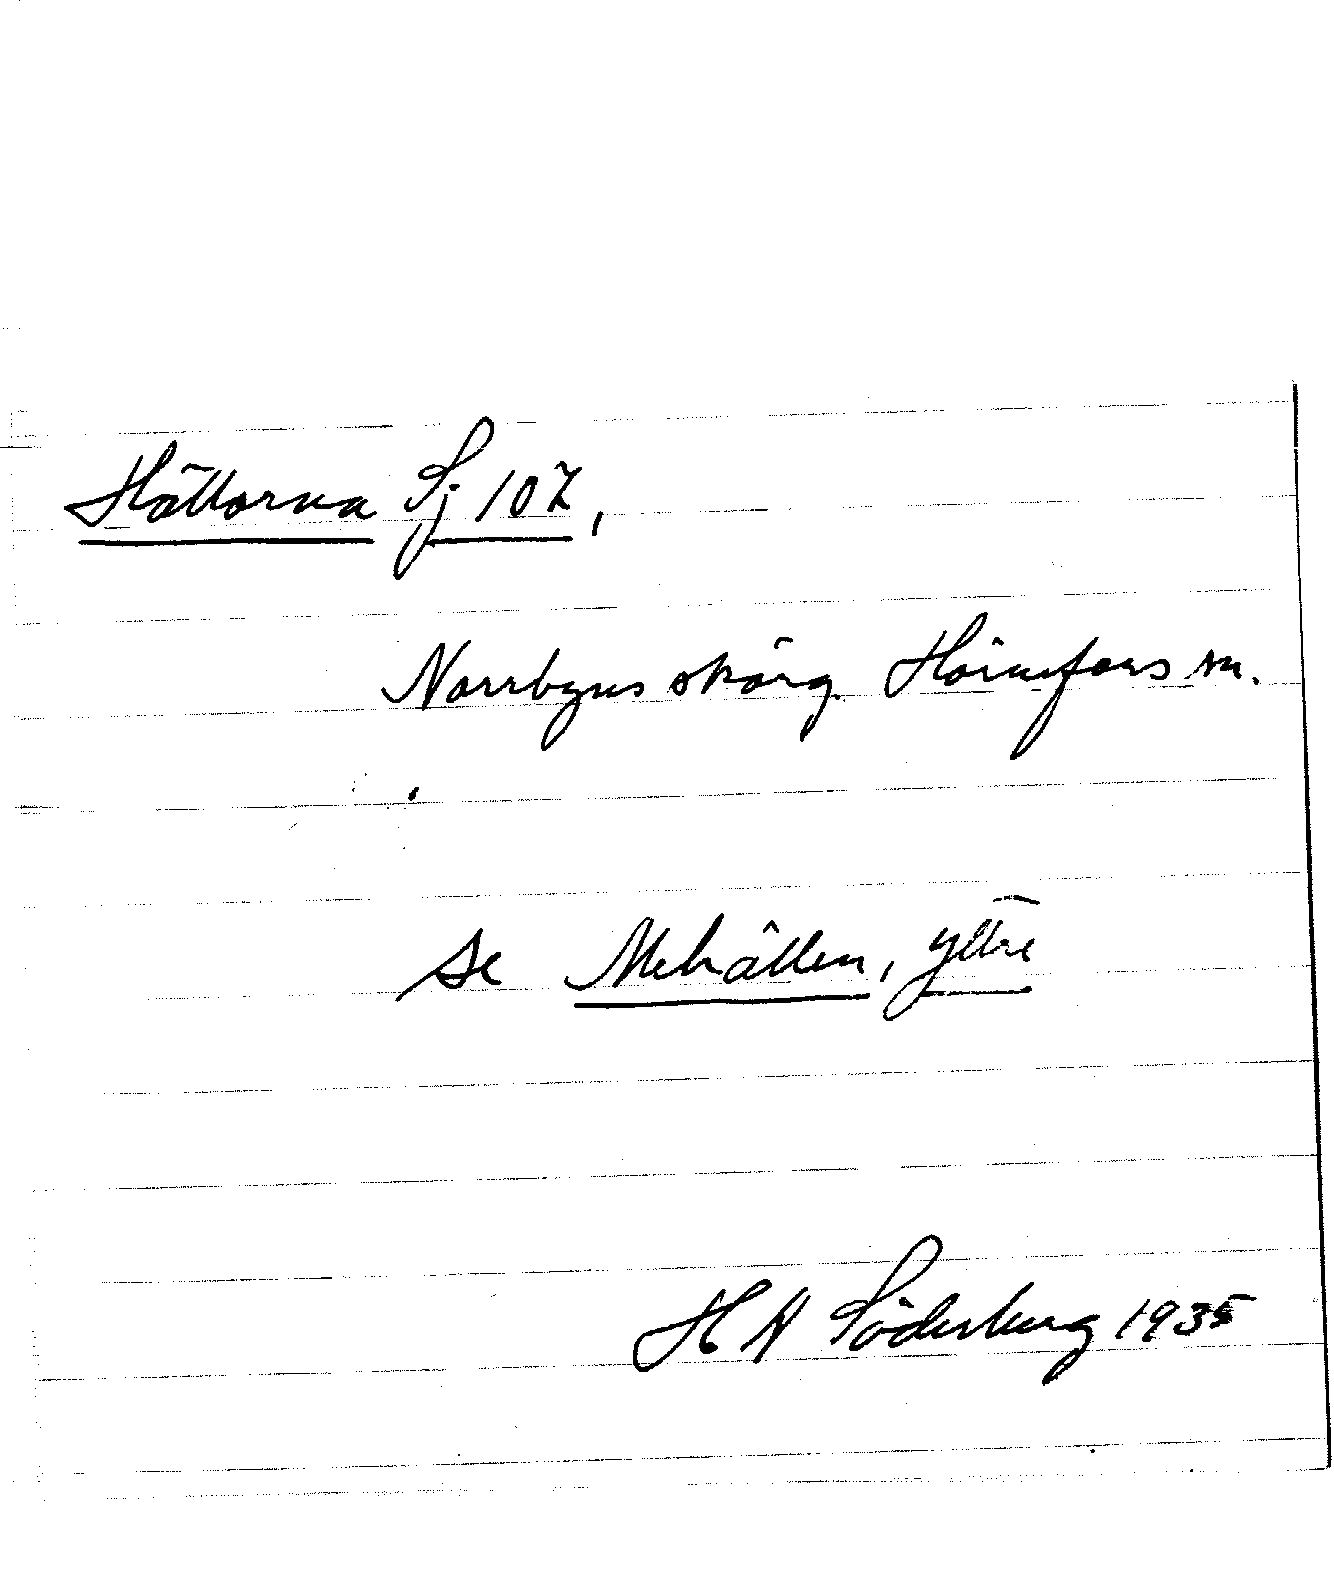 Hällorna Sj 107,
Norrbyns skärg. Hörnefors sn.
se Mehällen, yttre
H A Söderberg 1935